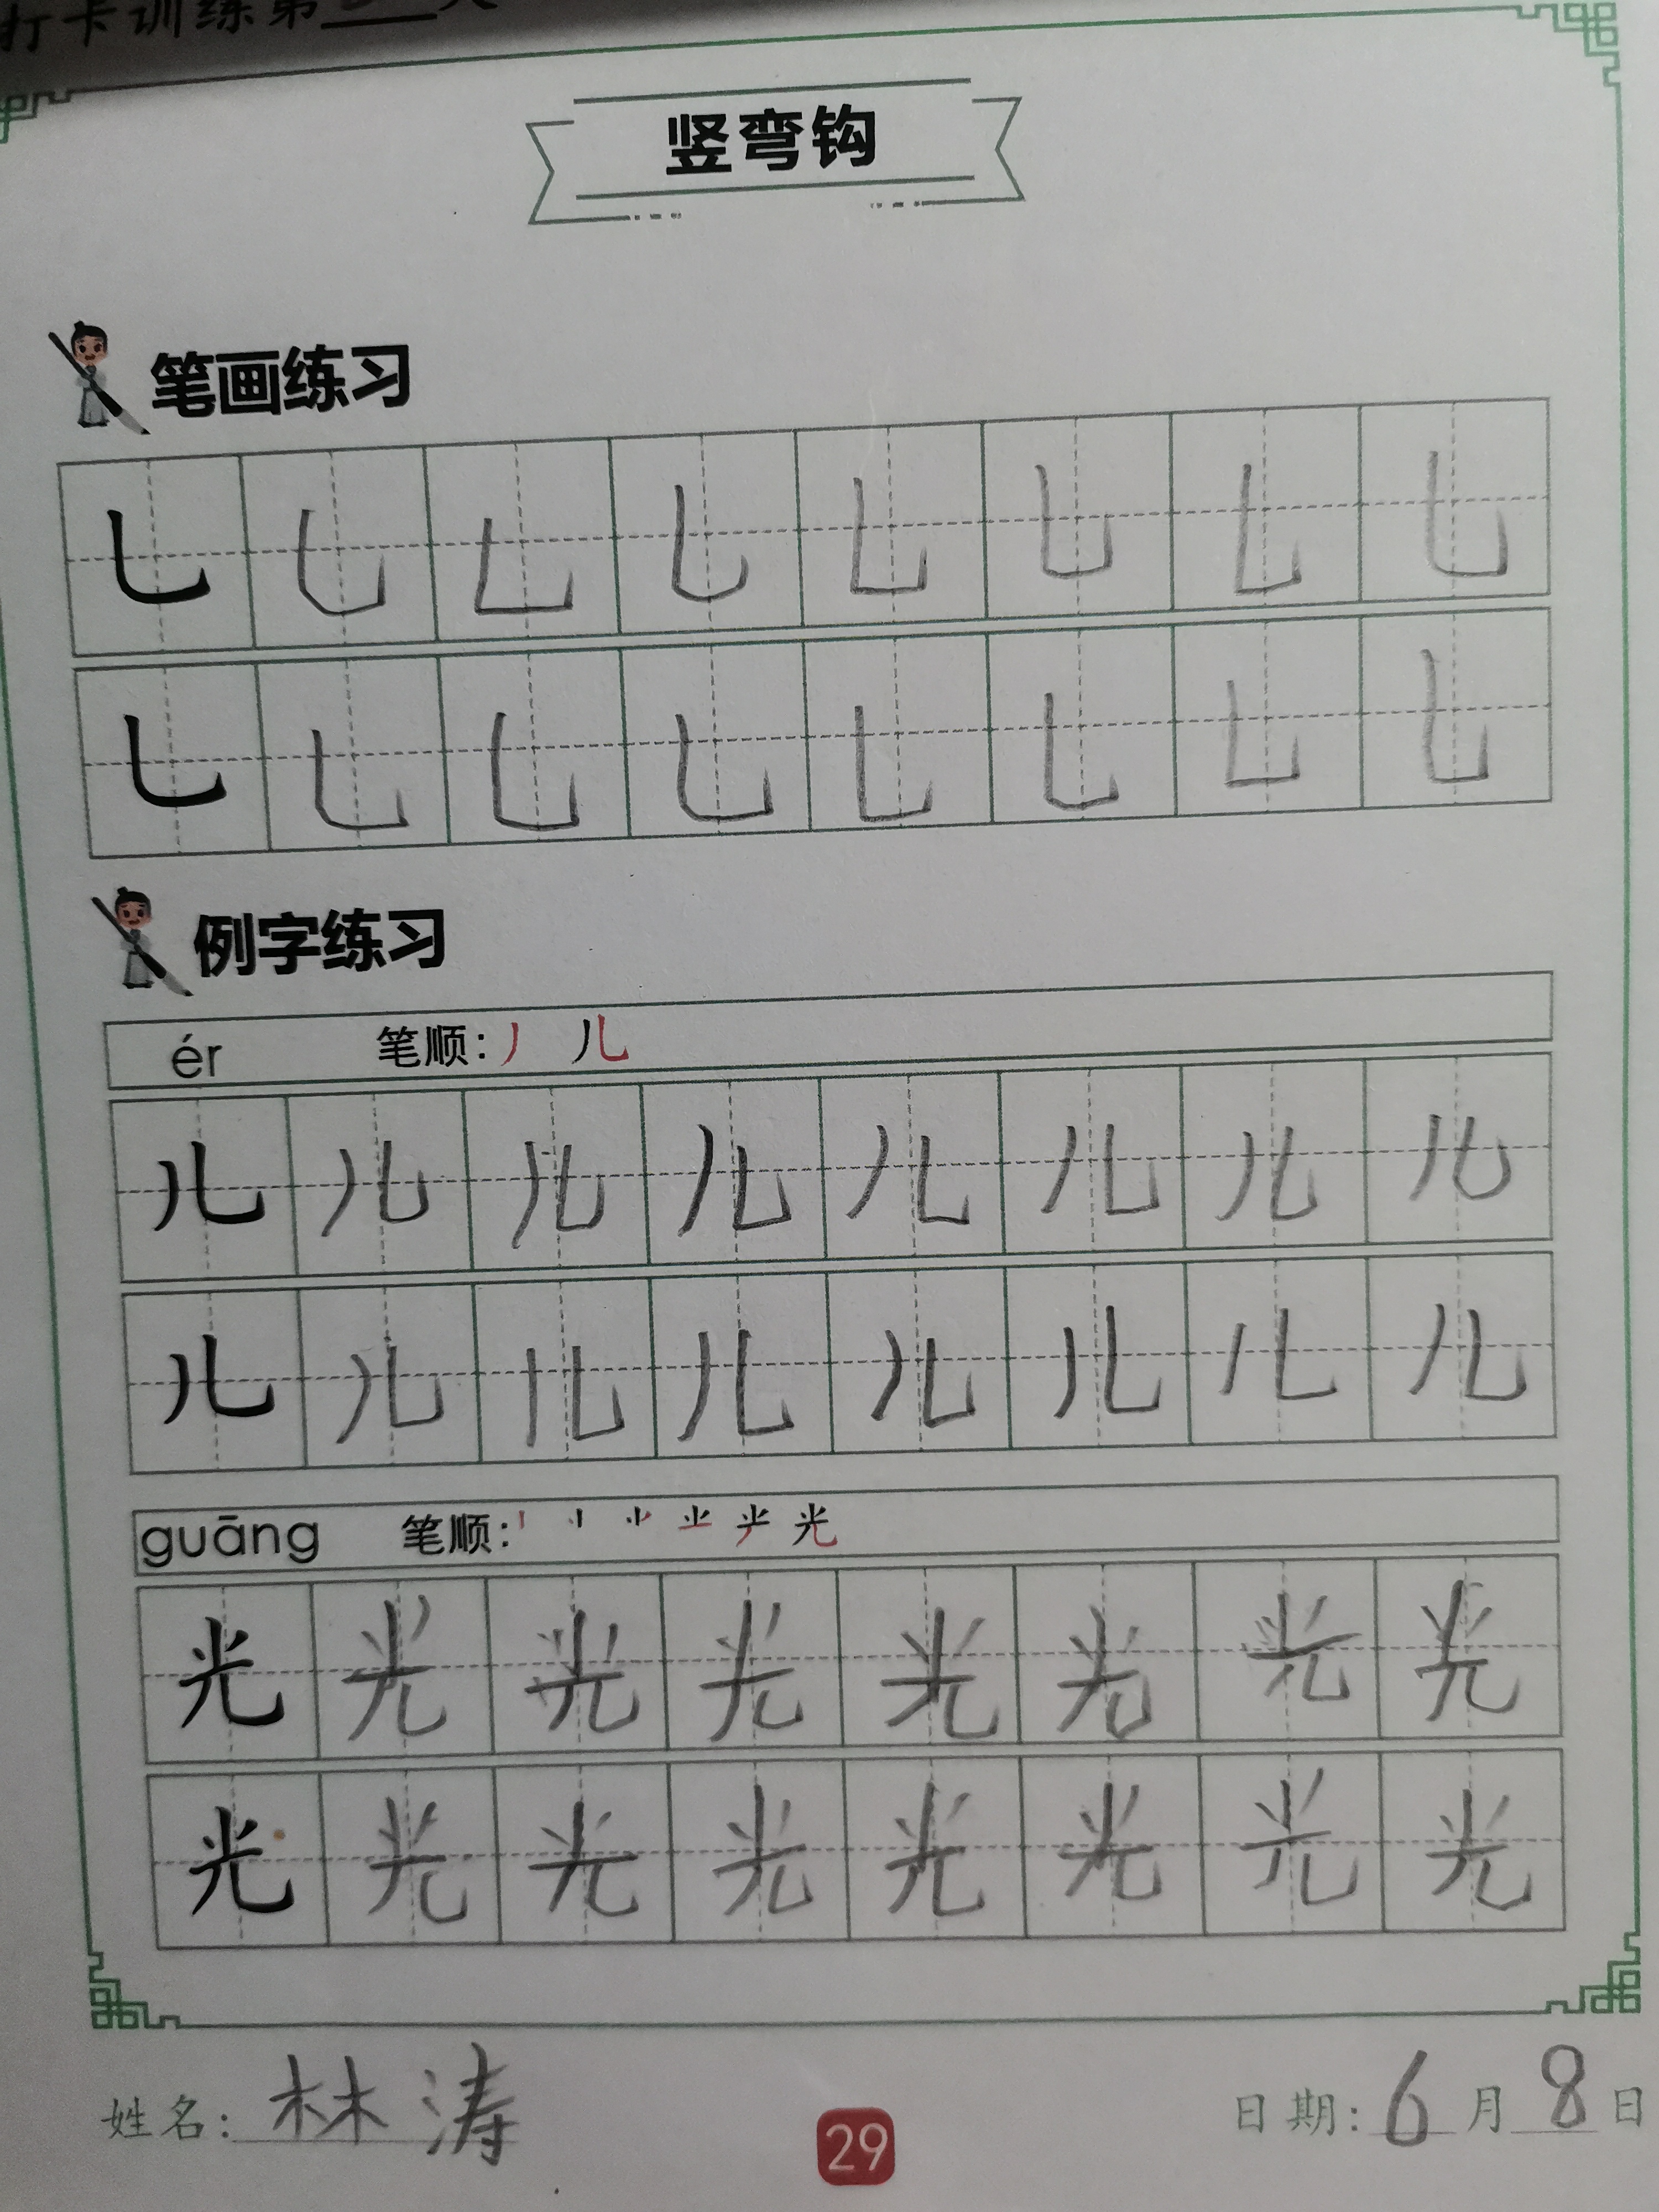 打卡训练第
竖弯钩
笔画练习
乚 乚 乚 乚 乚 乚 乚 乚
乚 乚 乚 乚 乚 乚 乚 乚
例字练习
ér 笔顺: 丿 儿
儿 儿 儿 儿 儿 儿 儿 儿
儿 儿 儿 儿 儿 儿 儿 儿
guāng 笔顺: 光
光 光 光 光 光 光 光 光
光 光 光 光 光 光 光 光
姓名: 林涛 29 日期: 6月8日